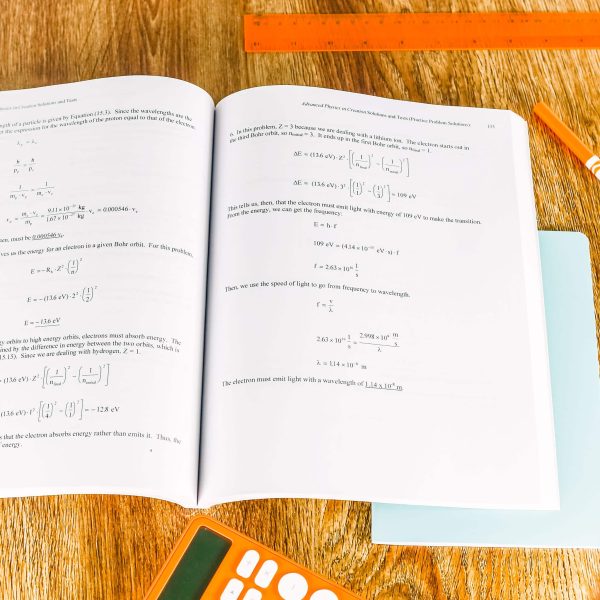 Physics in Creation Solutions and Tests
length of a particle is given by Equation (15.3). Since the wavelengths are the
the expression for the wavelength of the proton equal to that of the electron.
λp = λe
h/pp = h/pe
1/(mp · vp) = 1/(me · ve)
vp = (me · ve)/mp = (9.11 × 10⁻³¹ kg)/(1.67 × 10⁻²⁷ kg) · ve = 0.000546 · ve
must be 0.000546 ve.
us the energy for an electron in a given Bohr orbit. For this problem,
E = −Rh · Z² · (1/n)²
E = −(13.6 eV) · 2² · (1/2)²
E = −13.6 eV
orbits to high energy orbits, electrons must absorb energy. The
by the difference in energy between the two orbits, which is
(15.15). Since we are dealing with hydrogen, Z = 1.
(13.6 eV) · Z² · [(1/nfinal)² − (1/ninitial)²]
(13.6 eV) · 1² · [(1/4)² − (1/1)²] = −12.8 eV
that the electron absorbs energy rather than emits it. Thus, the
energy.
Advanced Physics in Creation Solutions and Tests (Practice Problem Solutions) 135
6. In this problem, Z = 3 because we are dealing with a lithium ion. The electron starts out in
the third Bohr orbit, so ninitial = 3. It ends up in the first Bohr orbit, so nfinal = 1.
ΔE = (13.6 eV) · Z² · [(1/nfinal)² − (1/ninitial)²]
ΔE = (13.6 eV) · 3² · [(1/1)² − (1/3)²] = 109 eV
This tells us, then, that the electron must emit light with energy of 109 eV to make the transition.
From the energy, we can get the frequency:
E = h · f
109 eV = (4.14 × 10⁻¹⁵ eV · s) · f
f = 2.63 × 10¹⁶ 1/s
Then, we use the speed of light to go from frequency to wavelength.
f = v/λ
2.63 × 10¹⁶ 1/s = (2.998 × 10⁸ m/s)/λ
λ = 1.14 × 10⁻⁸ m
The electron must emit light with a wavelength of 1.14 x 10⁻⁸ m.